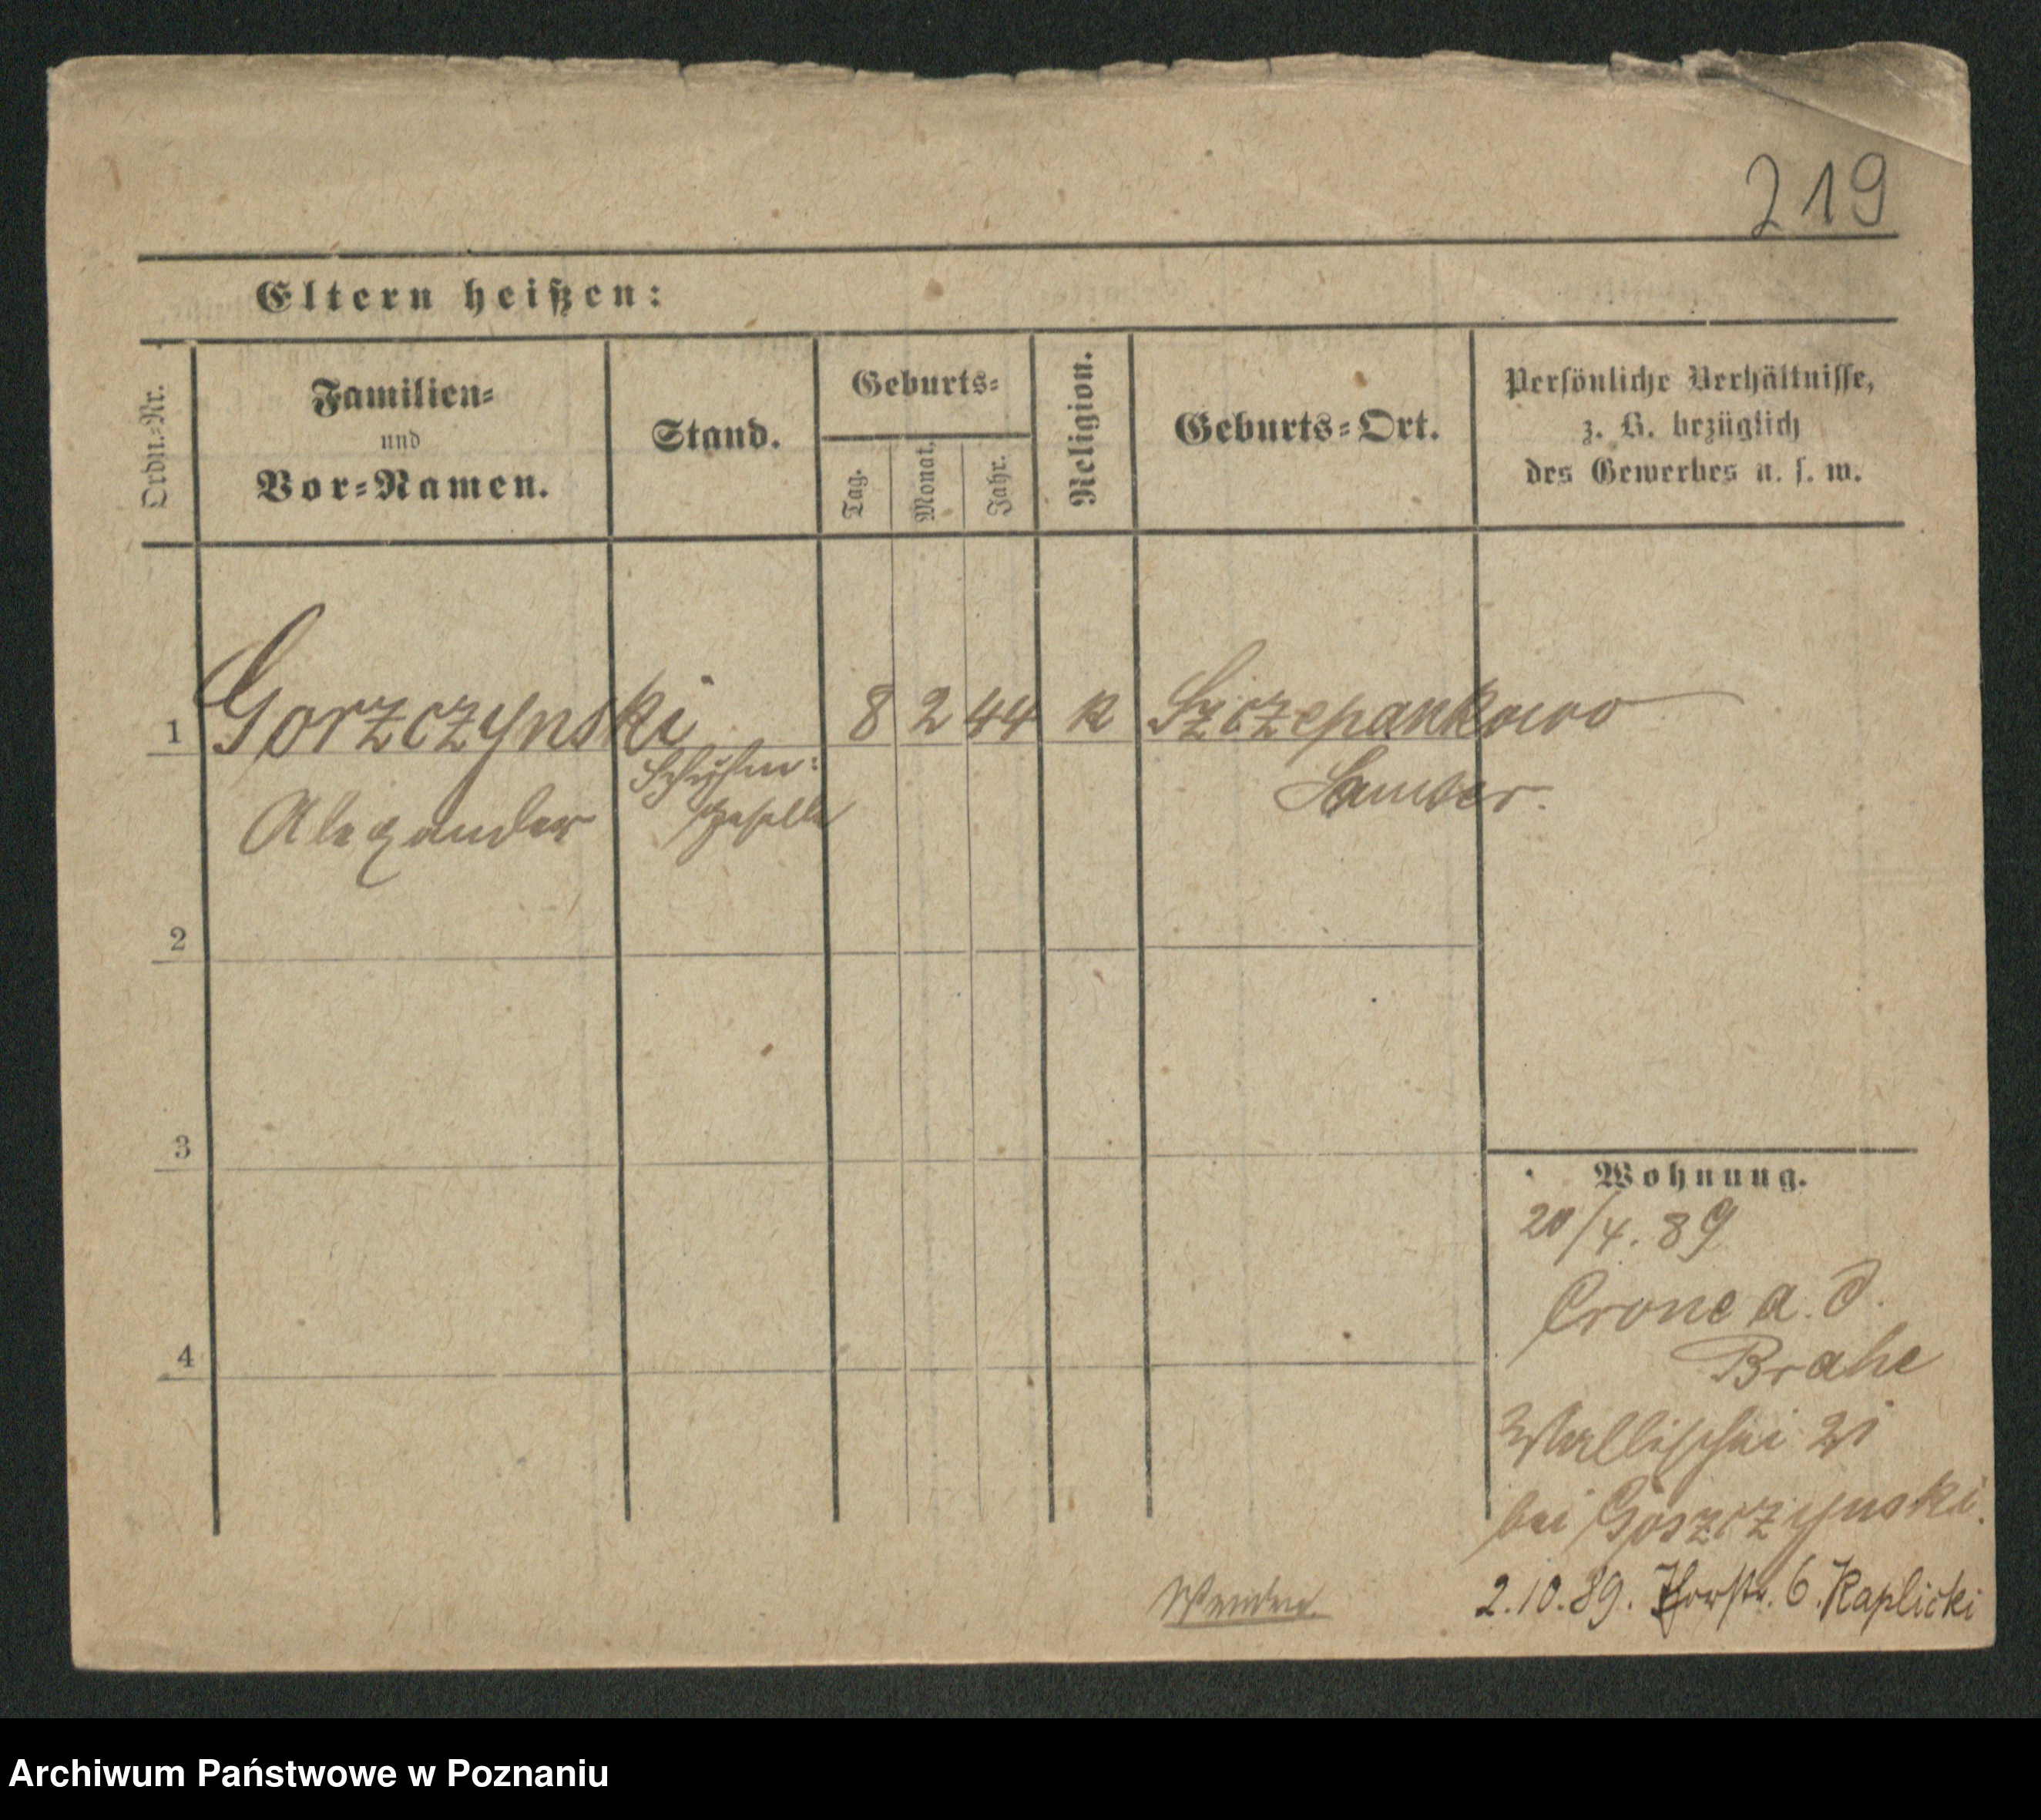 219
Eltern heißen:
Ordn.-Nr.
Familien-
und
Vor-Namen.
Stand.
Geburts-
Tag.
Monat.
Jahr.
Religion.
Geburts-Ort.
Persönliche Verhältnisse,
z. B. bezüglich
des Gewerbes u. s. w.
1 Gorzczynski 8 2 44 K Szczepankowo
Alexander
geselle
Samter.
2
3
4
Wohnung.
20/4. 89
Crone a. d.
Brahe
Wallischei 21
bei Goszczynski.
2.10.89. Thorstr. 6. Kaplicki
Wenden
Archiwum Państwowe w Poznaniu